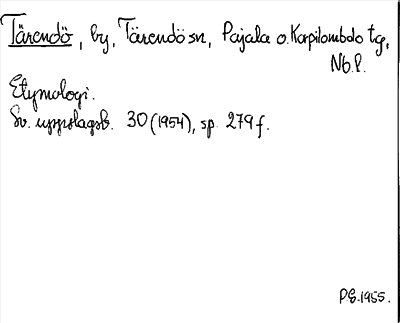 Tärendö, by, Tärendö sn, Pajala o. Korpilombolo tg,
Nb. l.
Etymologi.
Sv. uppslagsb. 30 (1954), sp. 279 f.
P.E. 1955.